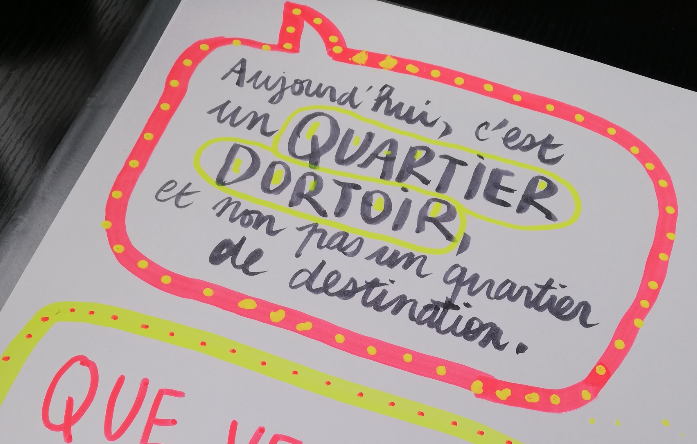 Aujourd'hui, c'est
un QUARTIER
DORTOIR,
et non pas un quartier
de destination.
QUE